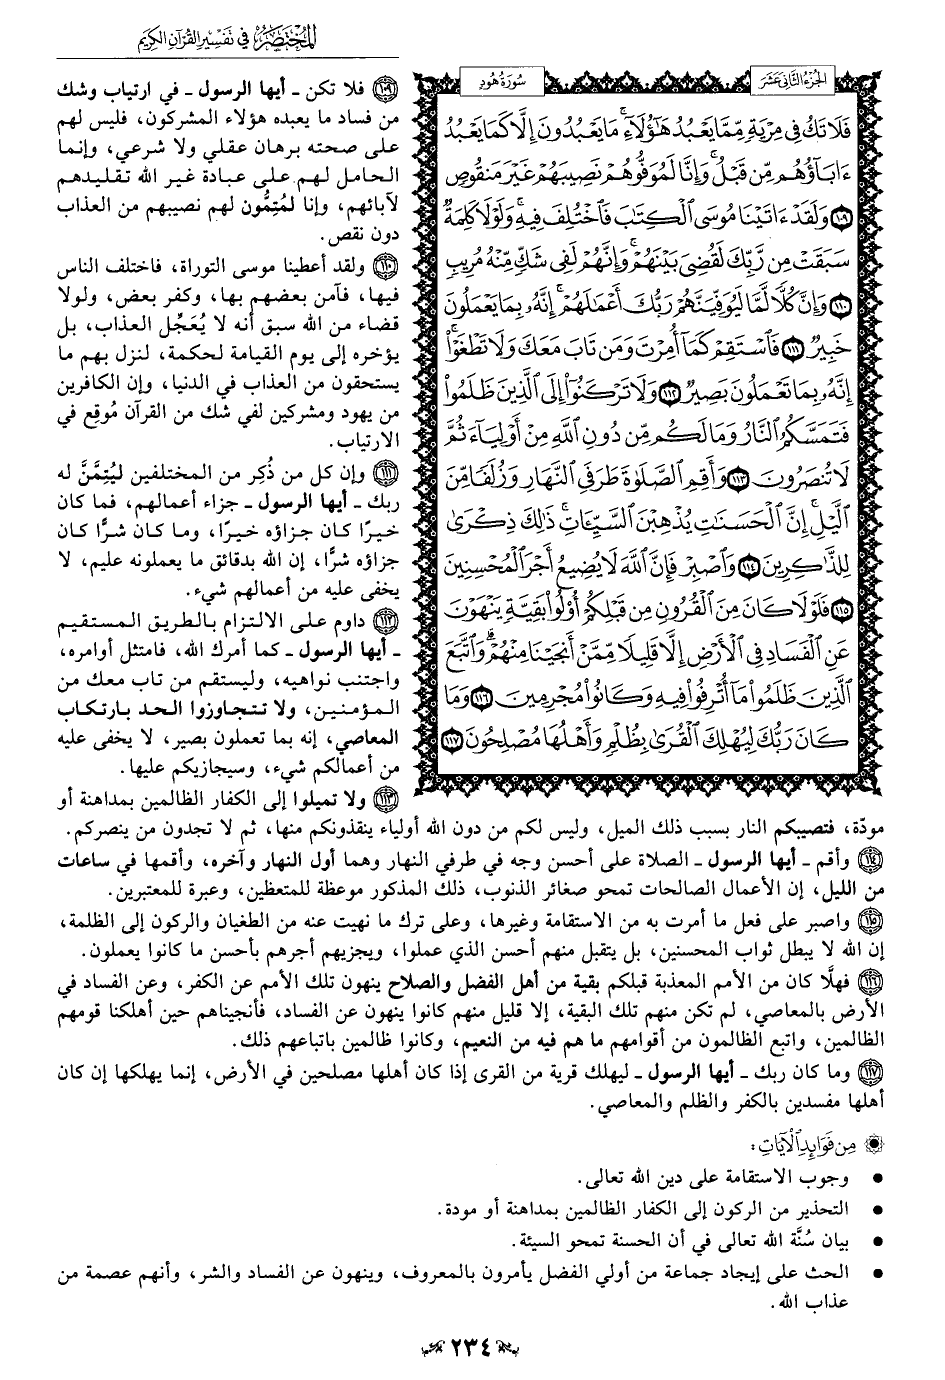 المختصر في تفسير القرآن الكريم
الجزء الثاني عشر
سورة هود
فَلَا تَكُ فِي مِرْيَةٍ مِّمَّا يَعْبُدُ هَٰٓؤُلَآءِۚ مَا يَعْبُدُونَ إِلَّا كَمَا يَعْبُدُ
ءَابَآؤُهُم مِّن قَبْلُۚ وَإِنَّا لَمُوَفُّوهُمْ نَصِيبَهُمْ غَيْرَ مَنقُوصٍ
١٠٩ وَلَقَدْ ءَاتَيْنَا مُوسَى ٱلْكِتَٰبَ فَٱخْتُلِفَ فِيهِۚ وَلَوْلَا كَلِمَةٌ
سَبَقَتْ مِن رَّبِّكَ لَقُضِيَ بَيْنَهُمْۚ وَإِنَّهُمْ لَفِي شَكٍّ مِّنْهُ مُرِيبٍ
١١٠ وَإِنَّ كُلًّا لَّمَّا لَيُوَفِّيَنَّهُمْ رَبُّكَ أَعْمَٰلَهُمْۚ إِنَّهُۥ بِمَا يَعْمَلُونَ
خَبِيرٌ ١١١ فَٱسْتَقِمْ كَمَآ أُمِرْتَ وَمَن تَابَ مَعَكَ وَلَا تَطْغَوْا۟ۚ
إِنَّهُۥ بِمَا تَعْمَلُونَ بَصِيرٌ ١١٢ وَلَا تَرْكَنُوٓا۟ إِلَى ٱلَّذِينَ ظَلَمُوا۟
فَتَمَسَّكُمُ ٱلنَّارُ وَمَا لَكُم مِّن دُونِ ٱللَّهِ مِنْ أَوْلِيَآءَ ثُمَّ
لَا تُنصَرُونَ ١١٣ وَأَقِمِ ٱلصَّلَوٰةَ طَرَفَيِ ٱلنَّهَارِ وَزُلَفًا مِّنَ
ٱلَّيْلِۚ إِنَّ ٱلْحَسَنَٰتِ يُذْهِبْنَ ٱلسَّيِّـَٔاتِۚ ذَٰلِكَ ذِكْرَىٰ
لِلذَّٰكِرِينَ ١١٤ وَٱصْبِرْ فَإِنَّ ٱللَّهَ لَا يُضِيعُ أَجْرَ ٱلْمُحْسِنِينَ
١١٥ فَلَوْلَا كَانَ مِنَ ٱلْقُرُونِ مِن قَبْلِكُمْ أُو۟لُوا۟ بَقِيَّةٍ يَنْهَوْنَ
عَنِ ٱلْفَسَادِ فِي ٱلْأَرْضِ إِلَّا قَلِيلًا مِّمَّنْ أَنجَيْنَا مِنْهُمْۗ وَٱتَّبَعَ
ٱلَّذِينَ ظَلَمُوا۟ مَآ أُتْرِفُوا۟ فِيهِ وَكَانُوا۟ مُجْرِمِينَ ١١٦ وَمَا
كَانَ رَبُّكَ لِيُهْلِكَ ٱلْقُرَىٰ بِظُلْمٍ وَأَهْلُهَا مُصْلِحُونَ ١١٧
١٠٩ فلا تكن ـ أيها الرسول ـ في ارتياب وشك
من فساد ما يعبده هؤلاء المشركون، فليس لهم
على صحته برهان عقلي ولا شرعي، وإنما
الحامل لهم على عبادة غير الله تقليدهم
لآبائهم، وإنا لمُتِمُّون لهم نصيبهم من العذاب
دون نقص.
١١٠ ولقد أعطينا موسى التوراة، فاختلف الناس
فيها، فآمن بعضهم بها، وكفر بعض، ولولا
قضاء من الله سبق أنه لا يُعَجِّل العذاب، بل
يؤخره إلى يوم القيامة لحكمة، لنزل بهم ما
يستحقون من العذاب في الدنيا، وإن الكافرين
من يهود ومشركين لفي شك من القرآن مُوقِع في
الارتياب.
١١١ وإن كل من ذُكِر من المختلفين ليُتِمَّنَّ له
ربك ـ أيها الرسول ـ جزاء أعمالهم، فما كان
خيرًا كان جزاؤه خيرًا، وما كان شرًّا كان
جزاؤه شرًّا، إن الله بدقائق ما يعملونه عليم، لا
يخفى عليه من أعمالهم شيء.
١١٢ داوم على الالتزام بالطريق المستقيم
ـ أيها الرسول ـ كما أمرك الله، فامتثل أوامره،
واجتنب نواهيه، وليستقم من تاب معك من
المؤمنين، ولا تتجاوزوا الحد بارتكاب
المعاصي، إنه بما تعملون بصير، لا يخفى عليه
من أعمالكم شيء، وسيجازيكم عليها.
١١٣ ولا تميلوا إلى الكفار الظالمين بمداهنة أو
مودّة، فتصيبكم النار بسبب ذلك الميل، وليس لكم من دون الله أولياء ينقذونكم منها، ثم لا تجدون من ينصركم.
١١٤ وأقم ـ أيها الرسول ـ الصلاة على أحسن وجه في طرفي النهار وهما أول النهار وآخره، وأقمها في ساعات
من الليل، إن الأعمال الصالحات تمحو صغائر الذنوب، ذلك المذكور موعظة للمتعظين، وعبرة للمعتبرين.
١١٥ واصبر على فعل ما أمرت به من الاستقامة وغيرها، وعلى ترك ما نهيت عنه من الطغيان والركون إلى الظلمة،
إن الله لا يبطل ثواب المحسنين، بل يتقبل منهم أحسن الذي عملوا، ويجزيهم أجرهم بأحسن ما كانوا يعملون.
١١٦ فهلَّا كان من الأمم المعذبة قبلكم بقية من أهل الفضل والصلاح ينهون تلك الأمم عن الكفر، وعن الفساد في
الأرض بالمعاصي، لم تكن منهم تلك البقية، إلا قليل منهم كانوا ينهون عن الفساد، فأنجيناهم حين أهلكنا قومهم
الظالمين، واتبع الظالمون من أقوامهم ما هم فيه من النعيم، وكانوا ظالمين باتباعهم ذلك.
١١٧ وما كان ربك ـ أيها الرسول ـ ليهلك قرية من القرى إذا كان أهلها مصلحين في الأرض، إنما يهلكها إن كان
أهلها مفسدين بالكفر والظلم والمعاصي.
من فوائد الآيات:
• وجوب الاستقامة على دين الله تعالى.
• التحذير من الركون إلى الكفار الظالمين بمداهنة أو مودة.
• بيان سُنَّة الله تعالى في أن الحسنة تمحو السيئة.
• الحث على إيجاد جماعة من أولي الفضل يأمرون بالمعروف، وينهون عن الفساد والشر، وأنهم عصمة من
عذاب الله.
٢٣٤